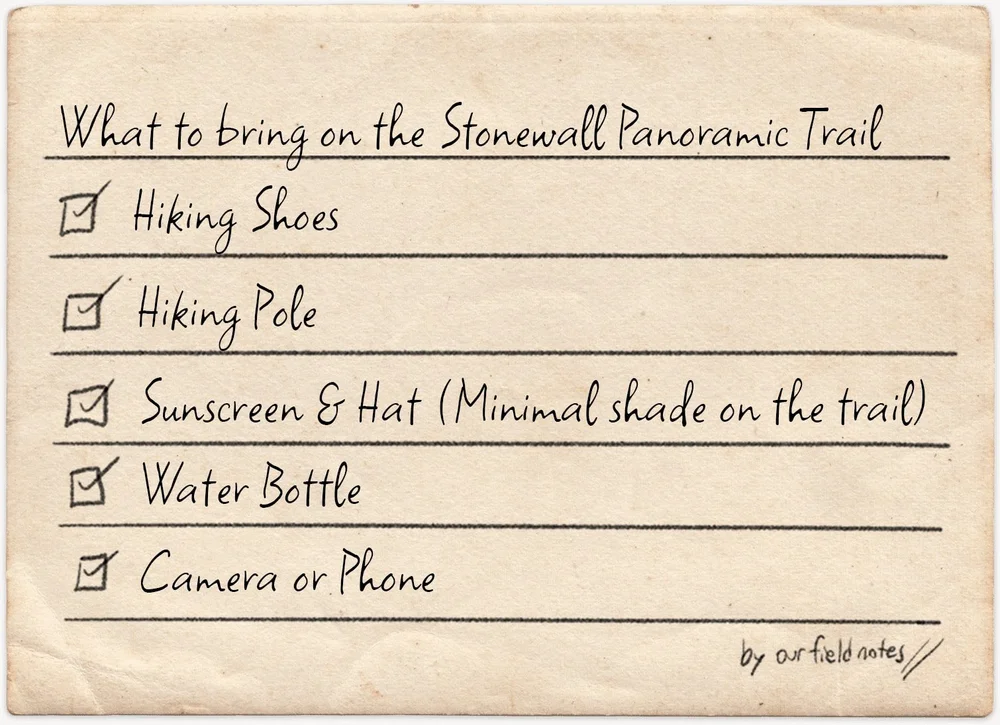 What to bring on the Stonewall Panoramic Trail
Hiking Shoes
Hiking Pole
Sunscreen & Hat (Minimal shade on the trail)
Water Bottle
Camera or Phone
by our field notes//